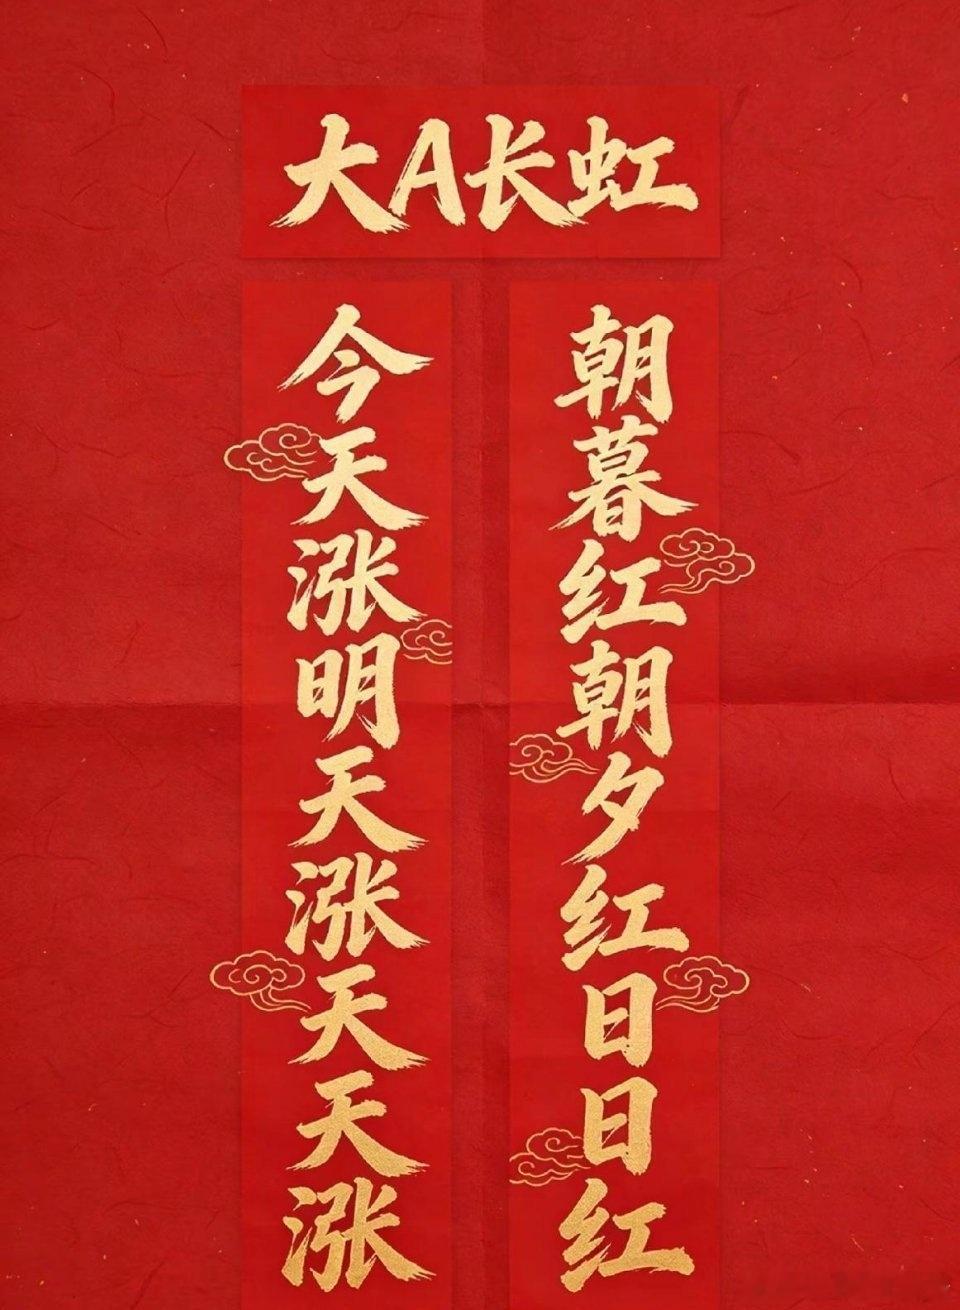 大A长虹
今天涨明天涨天天涨
朝暮红朝夕红日日红